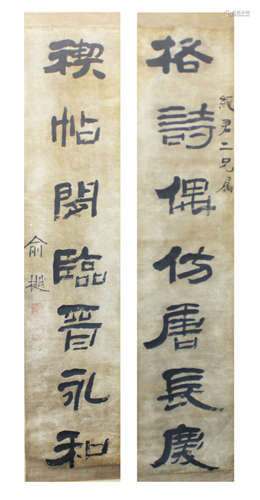 格詩偶仿唐長慶
君二兄属
禊帖閒臨晉永和
俞樾